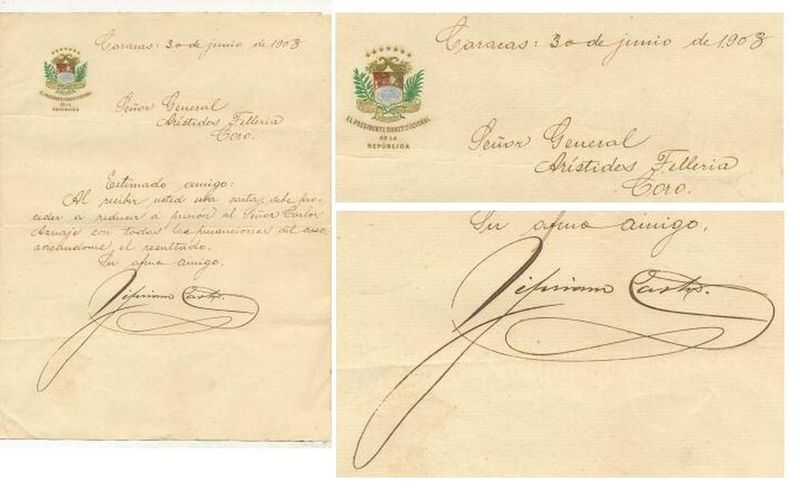 Caracas: 30 de junio de 1903
EL PRESIDENTE CONSTITUCIONAL
DE LA
REPÚBLICA
Señor General
Arístides Felleria
Coro.
Estimado amigo:
Al recibir usted esta carta, debe pro-
ceder a reducir a prisión al Señor Carlos
Aznaje con todas las precauciones del caso,
avisándome, el resultado.
Su afmo amigo.
Cipriano Castro.
Caracas: 30 de junio de 1903
EL PRESIDENTE CONSTITUCIONAL
DE LA
REPÚBLICA
Señor General
Arístides Felleria
Coro.
Su afmo amigo.
Cipriano Castro.